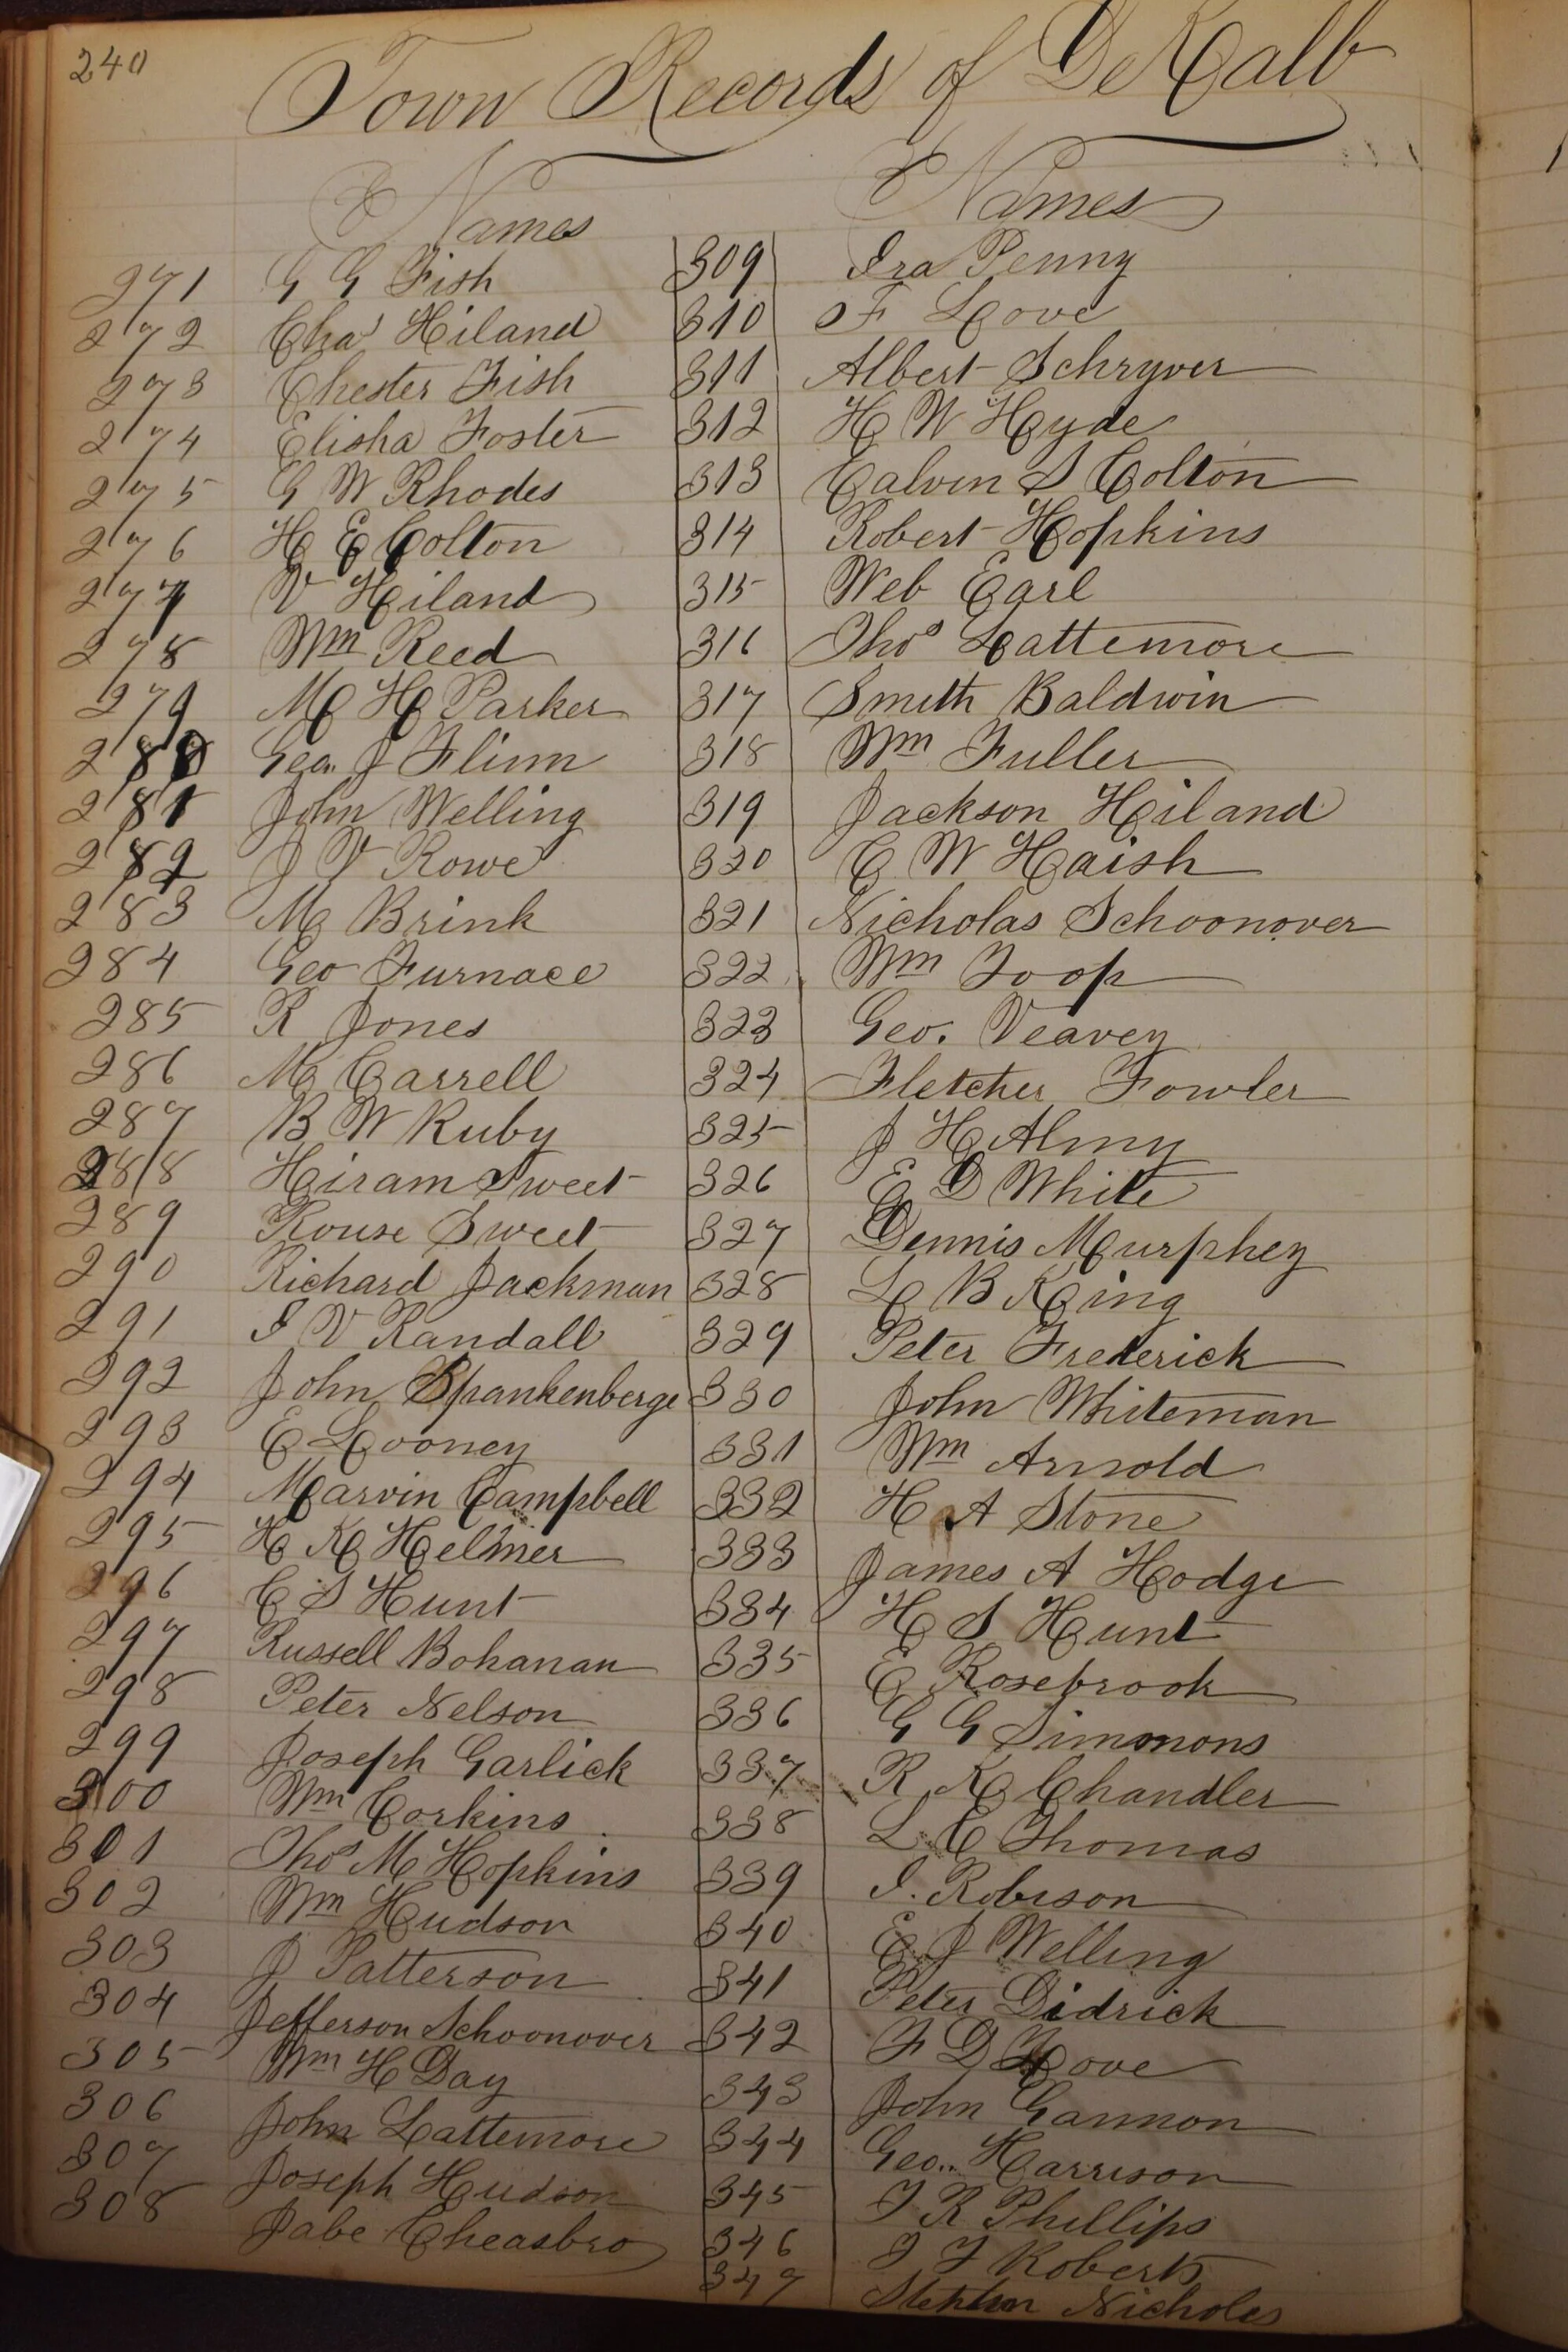 240
Town Records of DeKalb
Names
271 G G Fish
272 Chas Hiland
273 Chester Fish
274 Elisha Foster
275 G W Rhodes
276 H E Colton
277 V Hiland
278 Wm Reed
279 M H Parker
280 Geo. J Flinn
281 John Welling
282 J V Rowe
283 M Brink
284 Geo Furnace
285 R Jones
286 M Carrell
287 B W Ruby
288 Hiram Sweet
289 Rouse Sweet
290 Richard Jackman
291 I V Randall
292 John Spankenberge
293 E Looney
294 Marvin Campbell
295 H K Helmer
296 C S Hunt
297 Russell Bohanan
298 Peter Nelson
299 Joseph Garlick
300 Wm Corkins
301 Thos M Hopkins
302 Wm Hudson
303 J Patterson
304 Jefferson Schoonover
305 Wm H Day
306 John Lattemore
307 Joseph Hudson
308 Jabe Cheasbro
Names
309 Ira Penny
310 F Love
311 Albert Schryver
312 H W Hyde
313 Calvin S Colton
314 Robert Hopkins
315 Web Earl
316 Thos Lattemore
317 Smith Baldwin
318 Wm Fuller
319 Jackson Hiland
320 C W Haish
321 Nicholas Schoonover
322 Wm Toop
323 Geo. Veavey
324 Fletcher Fowler
325 J H Almy
326 E D White
327 Dennis Murphey
328 L B King
329 Peter Frederick
330 John Whiteman
331 Wm Arnold
332 H A Stone
333 James A Hodge
334 H S Hunt
335 E Rosebrook
336 G G Simmons
337 R K Chandler
338 L E Thomas
339 I. Robison
340 E J Welling
341 Peter Didrick
342 F D Love
343 John Gannon
344 Geo.. Harrison
345 T R Phillips
346 J F Roberts
347 Stephen Nicholes